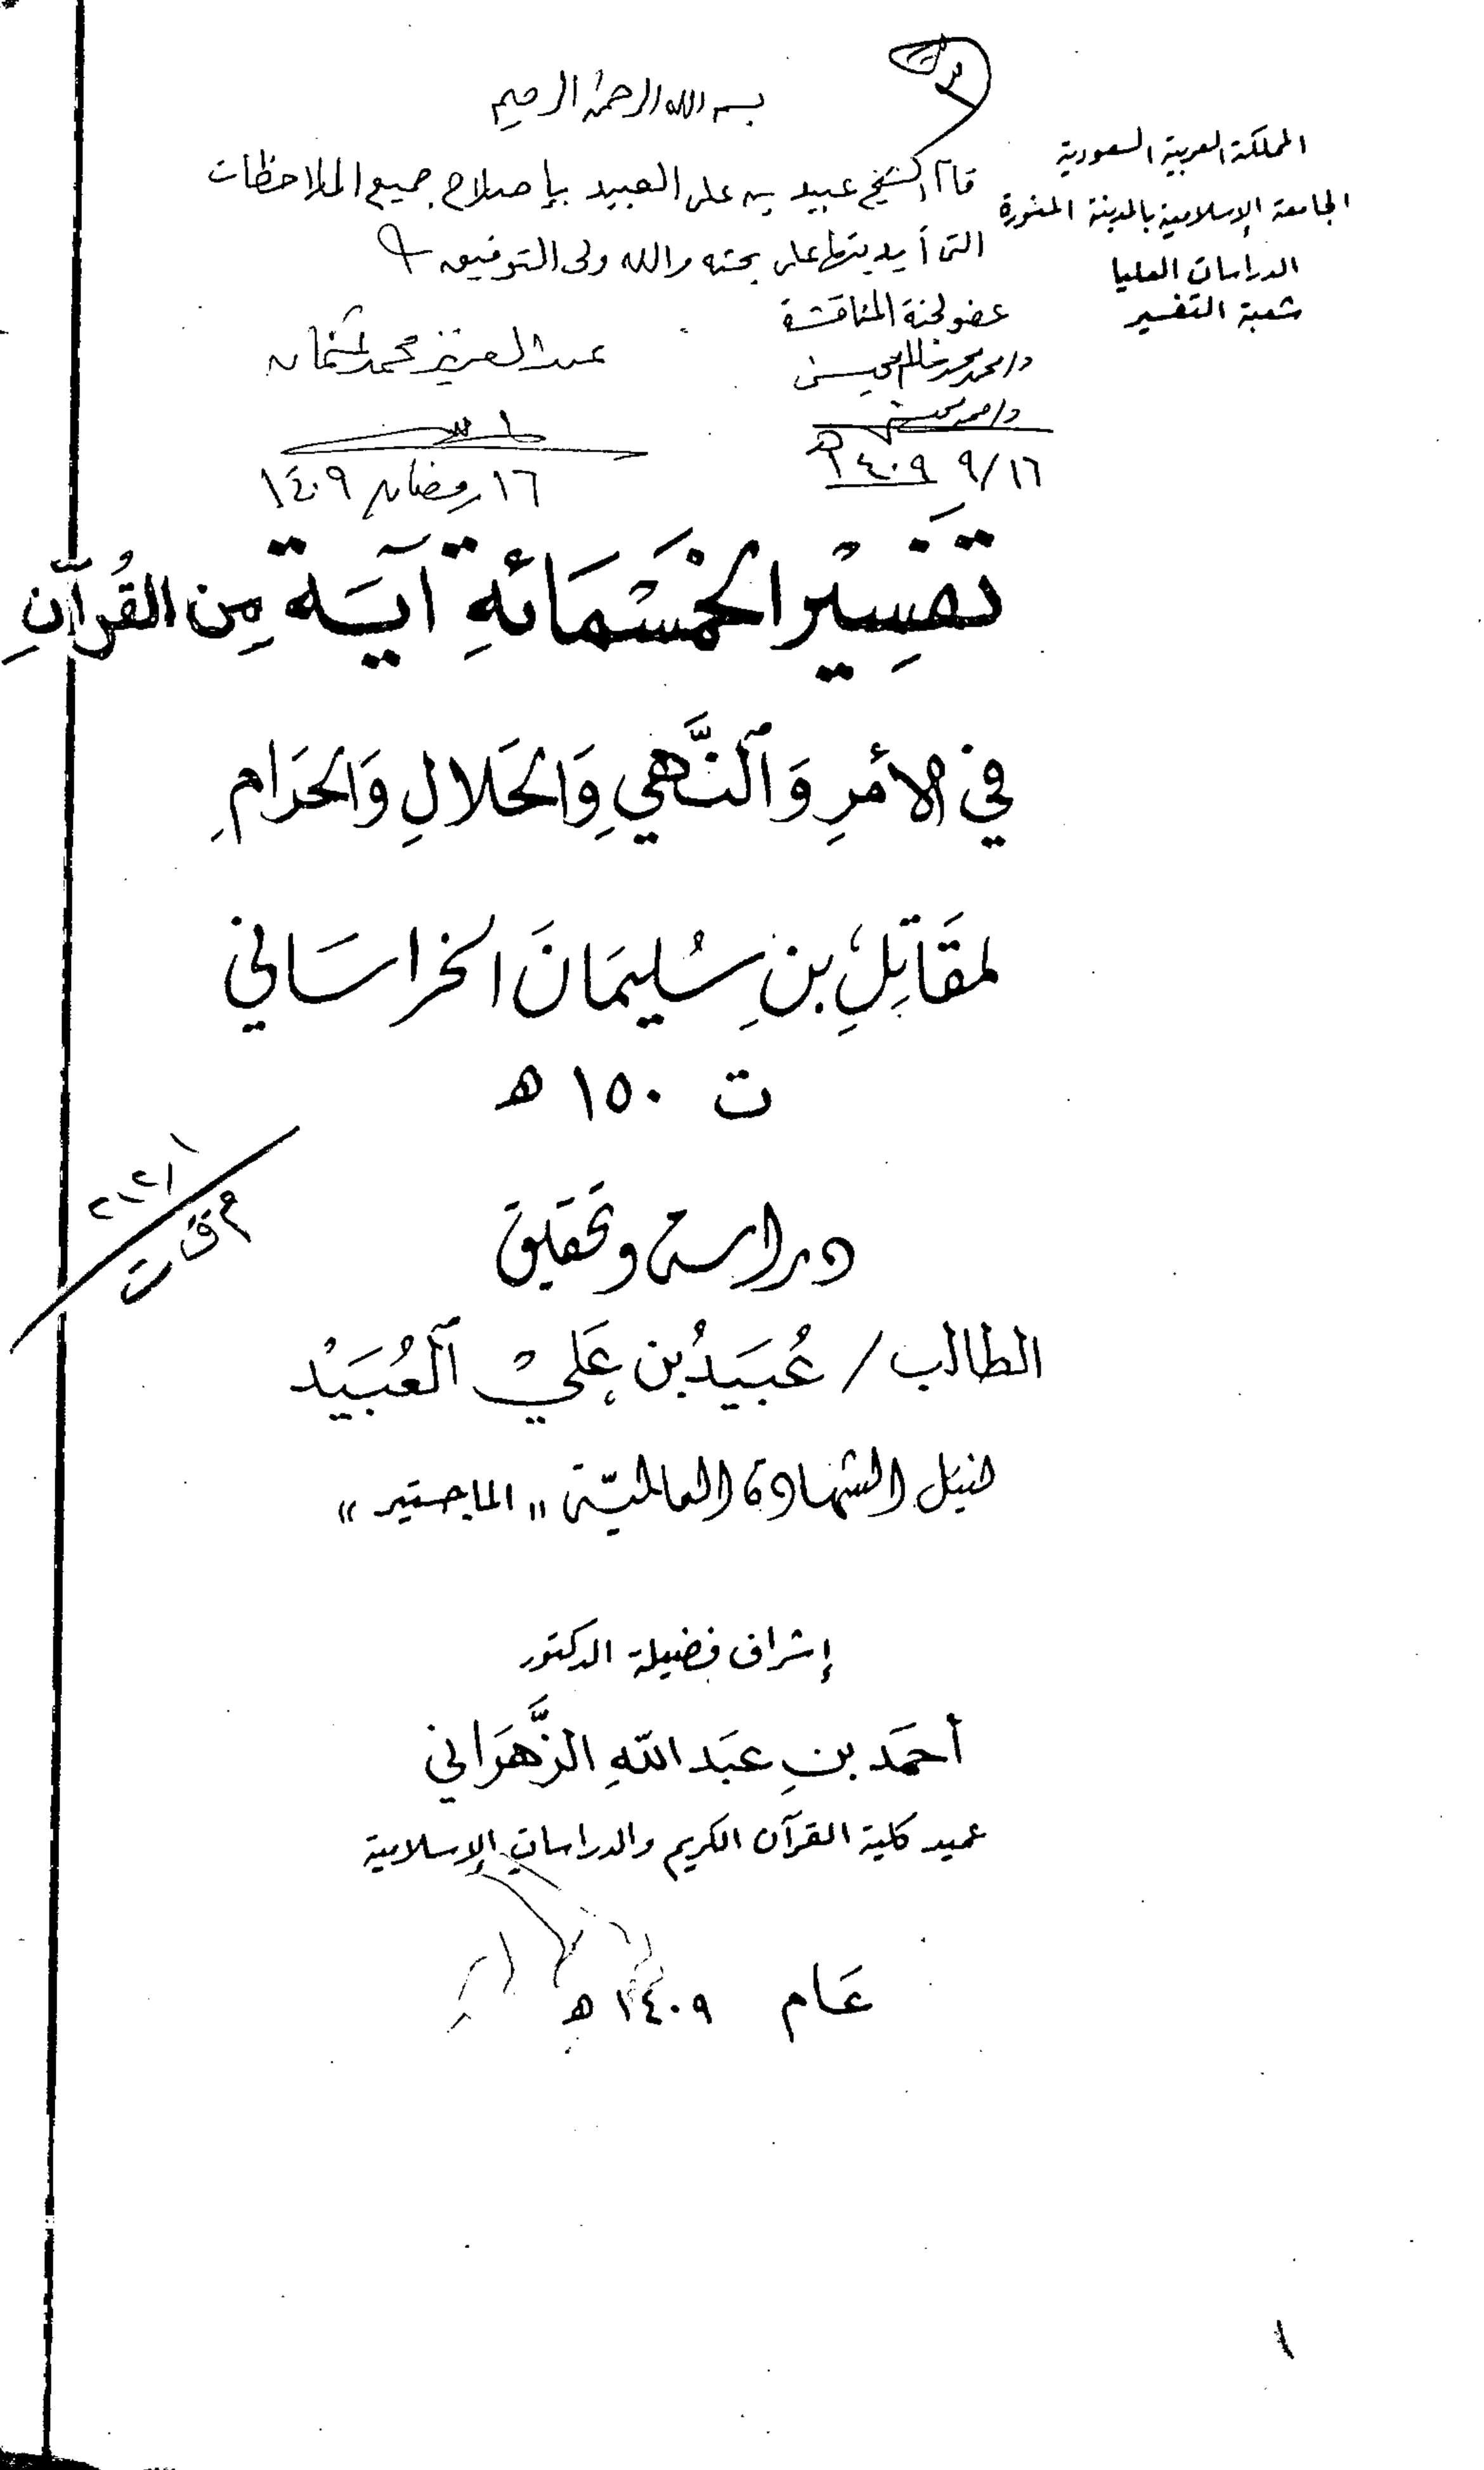 بسم الله الرحمن الرحيم
المملكة العربية السعودية
الجامعة الإسلامية بالمدينة المنورة
الدراسات العليا
شعبة التفسير
قام الشيخ عبيد بن على العبيد بإصلاح جميع الملاحظات
التى أبديتها على بحثه والله ولى التوفيق
عضو لجنة المناقشة
د/محمد محمد سالم محيسن
عبد العزيز محمد عثمان
١٦/٩ ١٤٠٩ هـ
١٦ رمضان ١٤٠٩
تَفْسِيْر الخَمْسْمَائةِ آيَة مِن القُرآنِ
في الأمْرِ وَالنَّهي وَالحَلالِ وَالحَرَامِ
لمقَاتِلِ بنِ سُليمَانَ الخراسَاني
ت ١٥٠ ه
دراسة وتحقيق
الطالب / عُبَيدُ بن عَليْ العُبَيْد
لنيل الشهادة العالميّة "الماجستير"
إشراف فضيلة الدكتور
أحمَد بنِ عبَد اللهِ الزَّهرَاني
عميد كلية القرآن الكريم والدراسات الإسلامية
عَام ١٤٠٩ ه
١